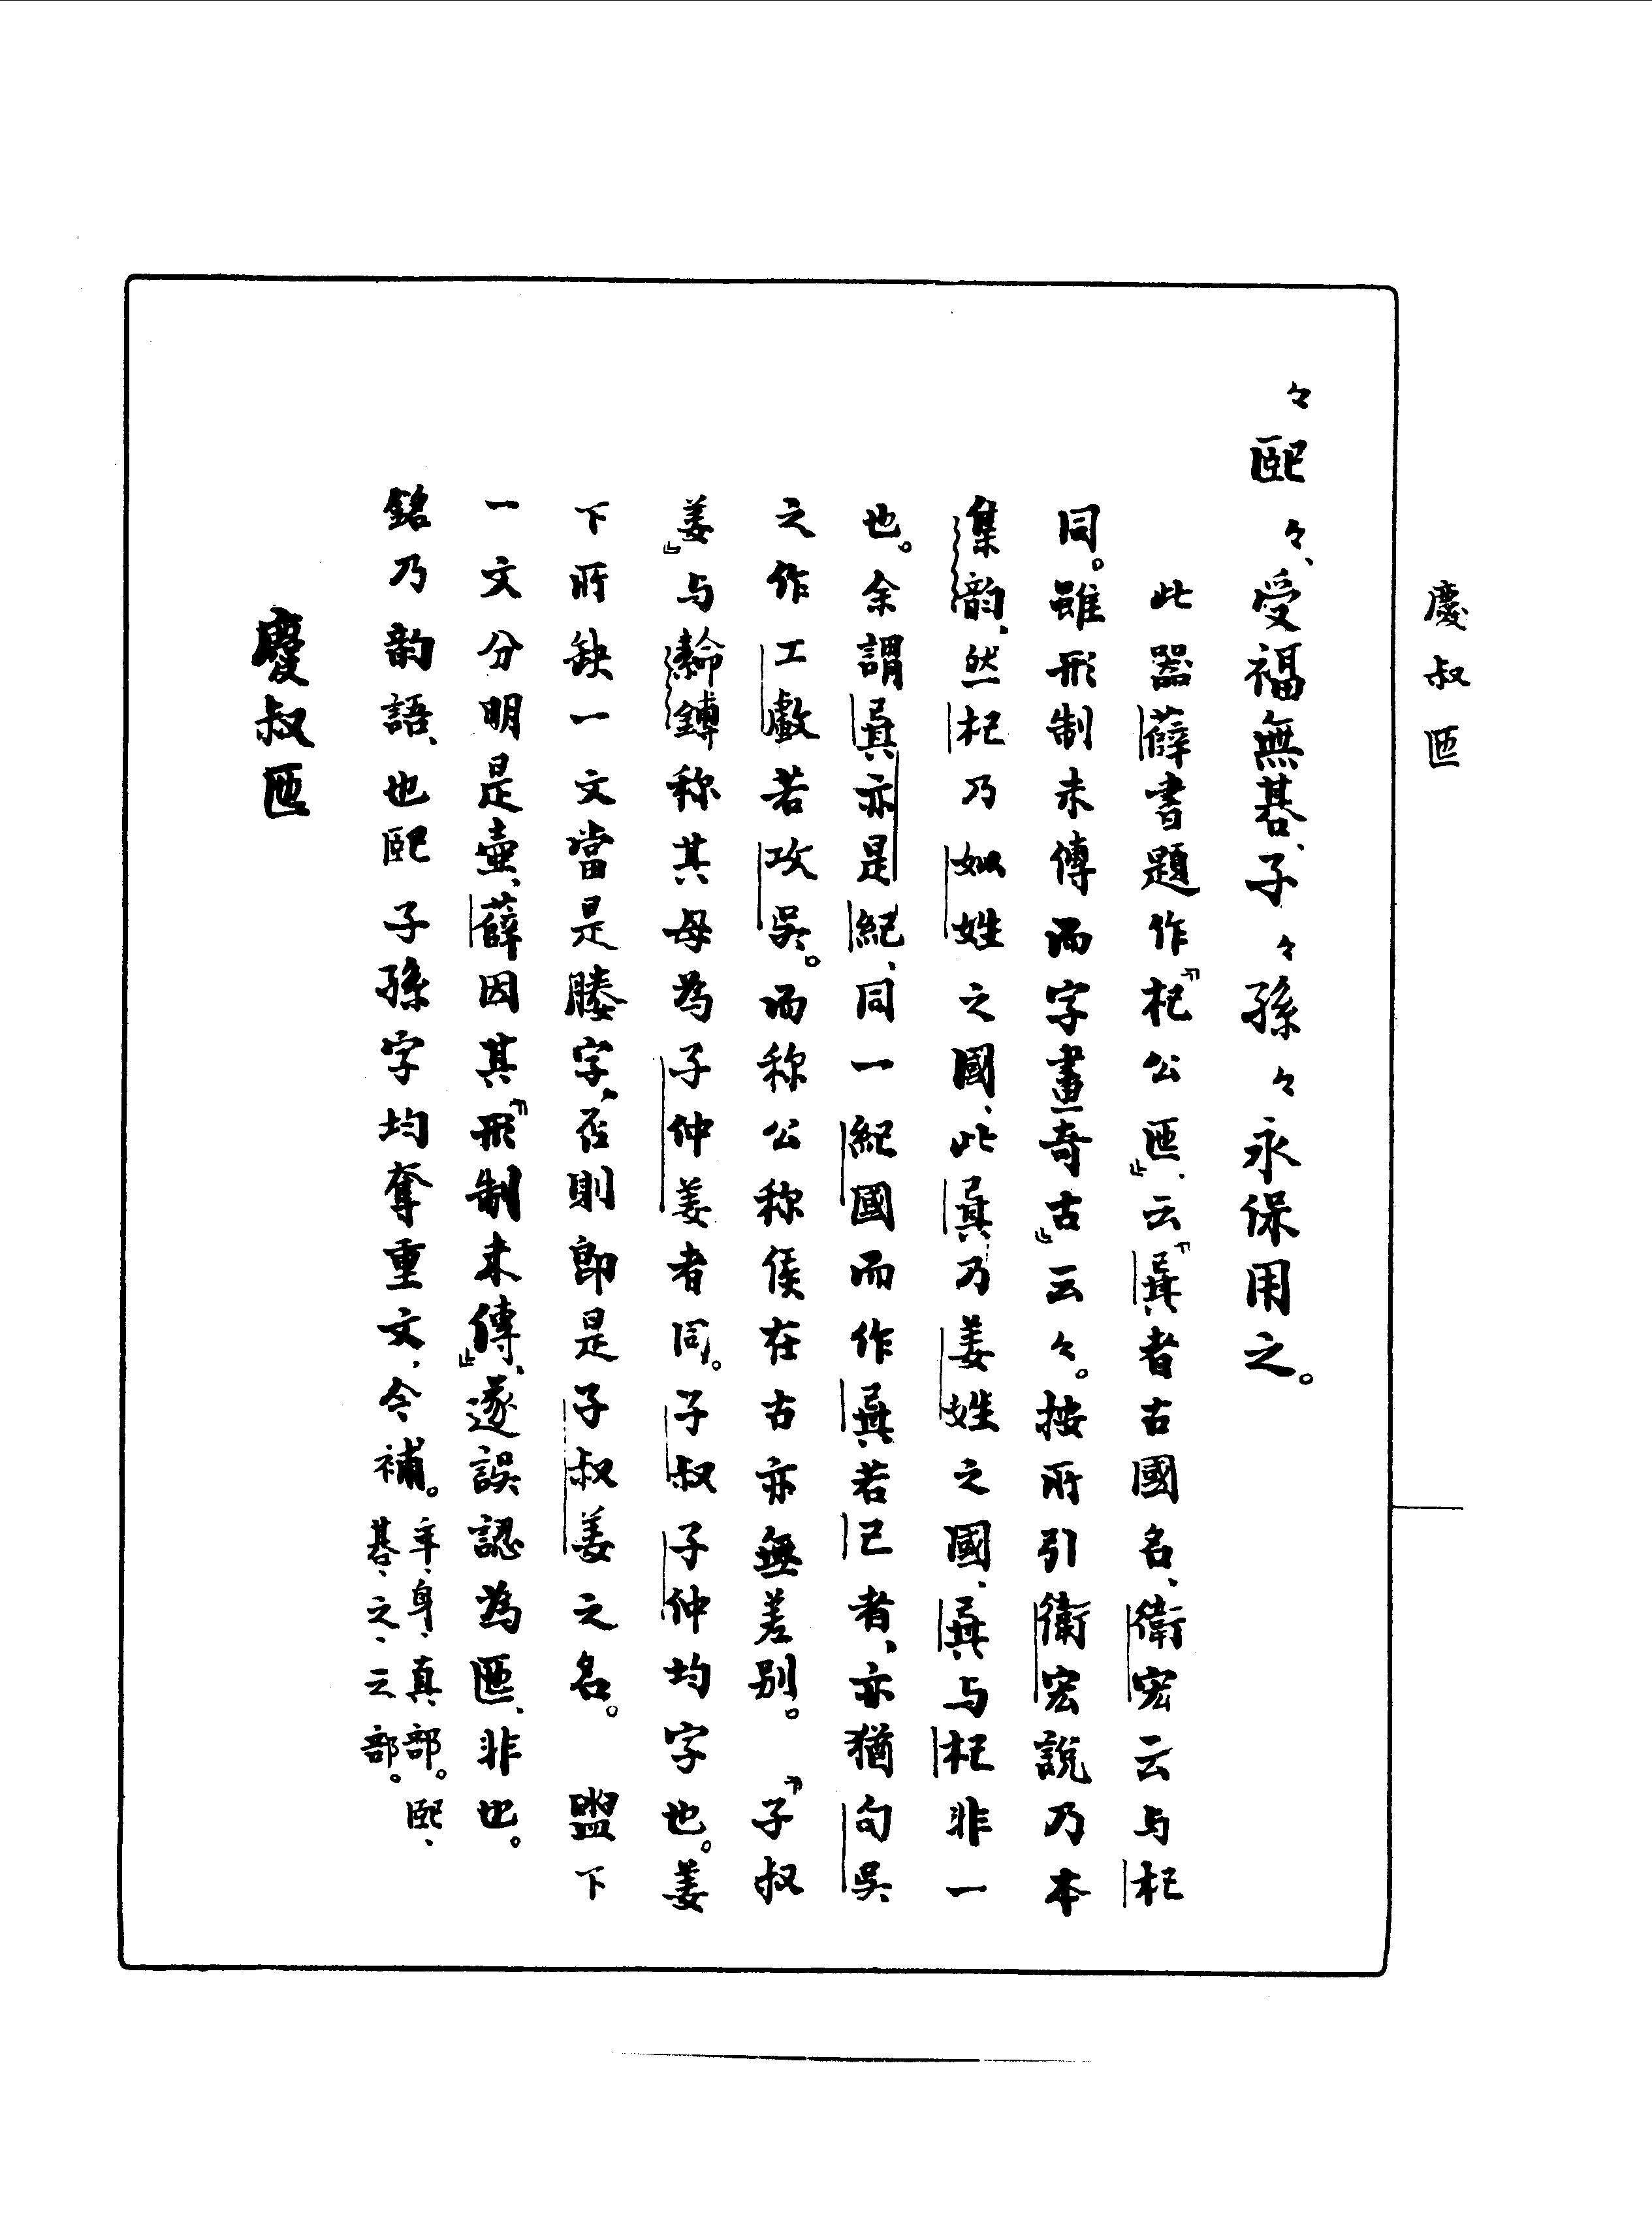 慶叔匜
々熙々、受福無碁、子々孫々永保用之。
此器薛書題作『杞公匜』、云『㠱者古國名、衛宏云与杞
同。雖形制未傳而字畫奇古』云々。按所引衛宏說乃本
集韵、然杞乃姒姓之國、此㠱乃姜姓之國、㠱与杞非一
也。余謂㠱亦是紀、同一紀國而作㠱若己者、亦猶句吳
之作工䱷若攻吳。而称公称侯在古亦無差别。『子叔
姜』与𦅫鎛称其母為子仲姜者同。子叔子仲均字也。姜
下所缺一文當是媵字、否則即是子叔姜之名。 盥下
一文分明是壷、薛因其『形制未傳』、遂誤認為匜、非也。
銘乃韵語、也熙子孫字均奪重文、今補。年、身、真部。熙、
碁、之、之部。
慶叔匜